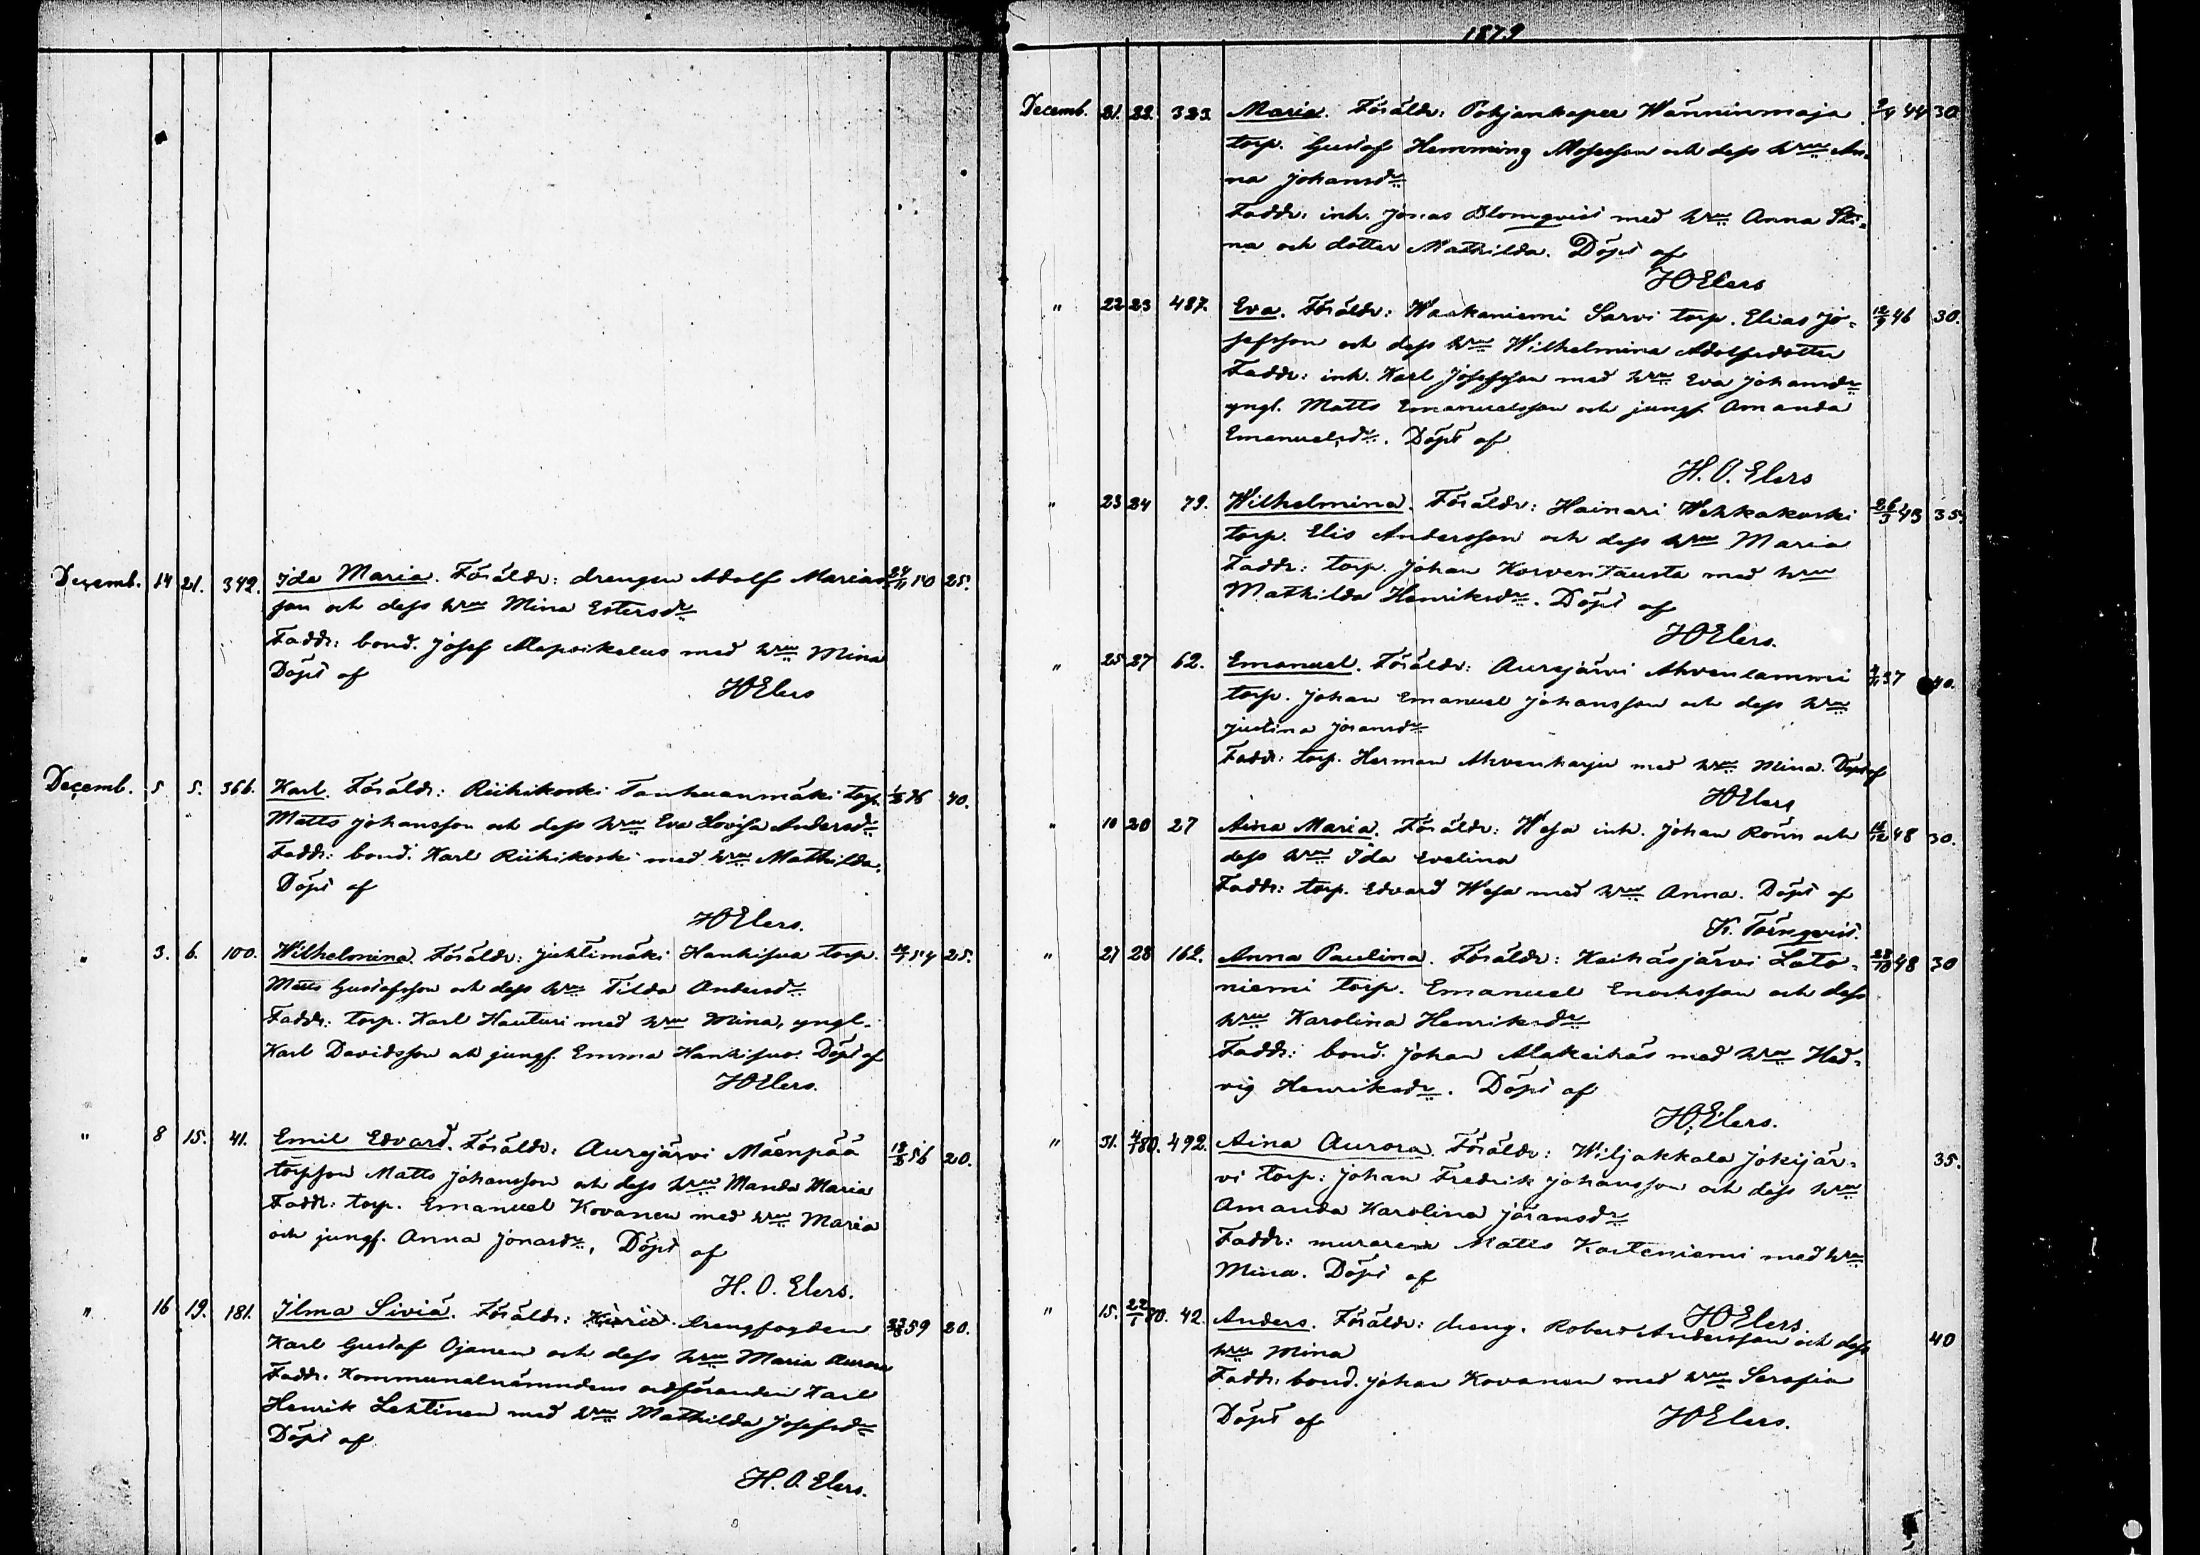 Decemb. 14 21. 342. Ida Maria. Föräldr: drengen Adolf Marias- 24/11 50 25.
son och dess hru Mina Estersdr
Faddr: bond. Josef Alapoikelus med hru Mina
Döpt af
HOElers
Decemb. 5 5. 366. Karl. Föräldr: Riihikoski Tanhuanmäki torp. 40.
Matts Johansson och dess hru Eva Lovisa Andersdr
Faddr: bond. Karl Riihikoski med hru Mathilda.
Döpt af
HOElers.
" 3. 6. 100. Wilhelmina. Föräldr: Juhtimäki Hankisua torp. 54 25.
Matts Gustafsson och dess hru Tilda Andersdr
Faddr: torp. Karl Hauturi med hru Mina, yngl.
Karl Davidsson och jungf. Emma Hankisuo. Döpt af
HOElers.
" 8 15. 41. Emil Edvard. Föräldr: Aurejärvi Mäenpää 56 20.
torpson Matts Johansson och dess hru Manda Maria
Faddr: torp. Emanuel Kovanen med hru Maria
och jungf. Anna Jonasdr. Döpt af
H. O. Elers.
" 16 19. 181. Ilma Siviä. Föräldr: drengfogden 59 20.
Karl Gustaf Ojanen och dess hru Maria Aurora
Faddr. Kommunalnämndens ordföranden Karl
Henrik Lehtinen med hru Mathilda Josefsdr
Döpt af
H. O. Elers.
1879
Decemb. 21. 22. 323. Maria. Föräldr: Pohjankapee Wänninmaja 9/4 44 30.
torp. Gustaf Hemming Mosesson och dess hru An-
na Johansdr
Faddr. inh. Jonas Blomqvist med hru Anna Sti-
na och dotter Mathilda. Döpt af
HOElers
" 22 23 487. Eva. Föräldr: Waakaniemi Sarvi torp. Elias Jo- 12/9 46 30.
sefsson och dess hru Wilhelmina Adolfsdotter
Faddr: inh. Karl Josefsson med hru Eva Johansdr
yngl. Matts Emanuelsson och jungf. Amanda
Emanuelsdr. Döpt af
H. O. Elers
" 23 24 79. Wilhelmina. Föräldr: Hainari Wehkakoski 26/3 43 35.
torp. Elis Andersson och dess hru Maria
Faddr: torp. Johan Korventausta med hru
Mathilda Henriksdr. Döpt af
HOElers.
" 25 27 62. Emanuel. Föräldr: Aurejärvi Ahvenlammi 37 40.
torp. Johan Emanuel Johansson och dess hru
Justina Joransdr
Faddr: torp. Herman Ahvenharju med hru Mina. Döpt af
HOElers
" 10 20 27 Aina Maria. Föräldr: Wesa inh. Johan Roün och 48 30.
dess hru Ida Evelina
Faddr: torp. Edvard Wesa med hru Anna. Döpt af
K. Törnqvist.
" 27 28 162. Anna Paulina. Föräldr: Keihäsjärvi Lato- 28/10 48 30
niemi torp. Emanuel Enochsson och dess
hru Karolina Henriksdr
Faddr: bond. Johan Alakeihäs med hru Hed-
vig Henriksdr. Döpt af
HOElers.
" 31. 4/1 80. 492. Aina Aurora. Föräldr: Wiljakkala Jokijär- 35.
vi torp: Johan Fredrik Johansson och dess hru
Amanda Karolina Joransdr
Faddr: muraren Matts Korteniemi med hru
Mina. Döpt af
HOElers.
" 15. 22/1 80. 42. Anders. Föräldr: dreng. Robert Andersson och dess 40
hru Mina
Faddr: bond. Johan Kovanen med hru Serafia
Döpt af HOElers.